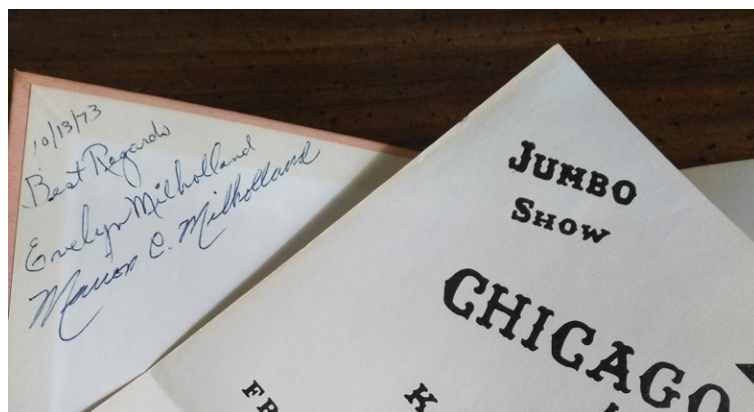 10/13/73
Best Regards
Evelyn Milholland
Marion C. Milholland
JUMBO
SHOW
CHICAGO